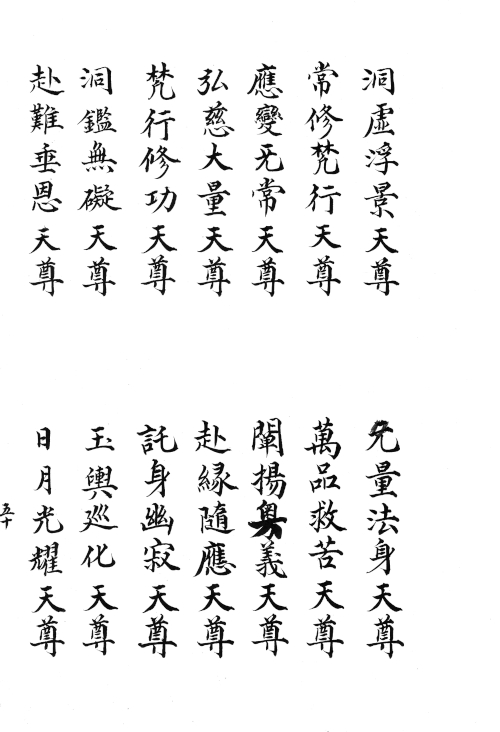 洞虛浮景天尊
无量法身天尊
常修梵行天尊
萬品救苦天尊
應變无常天尊
闡揚奥義天尊
弘慈大量天尊
赴緣隨應天尊
梵行修功天尊
託身幽寂天尊
洞鑑無礙天尊
玉輿巡化天尊
赴難垂恩天尊
日月光耀天尊
五十